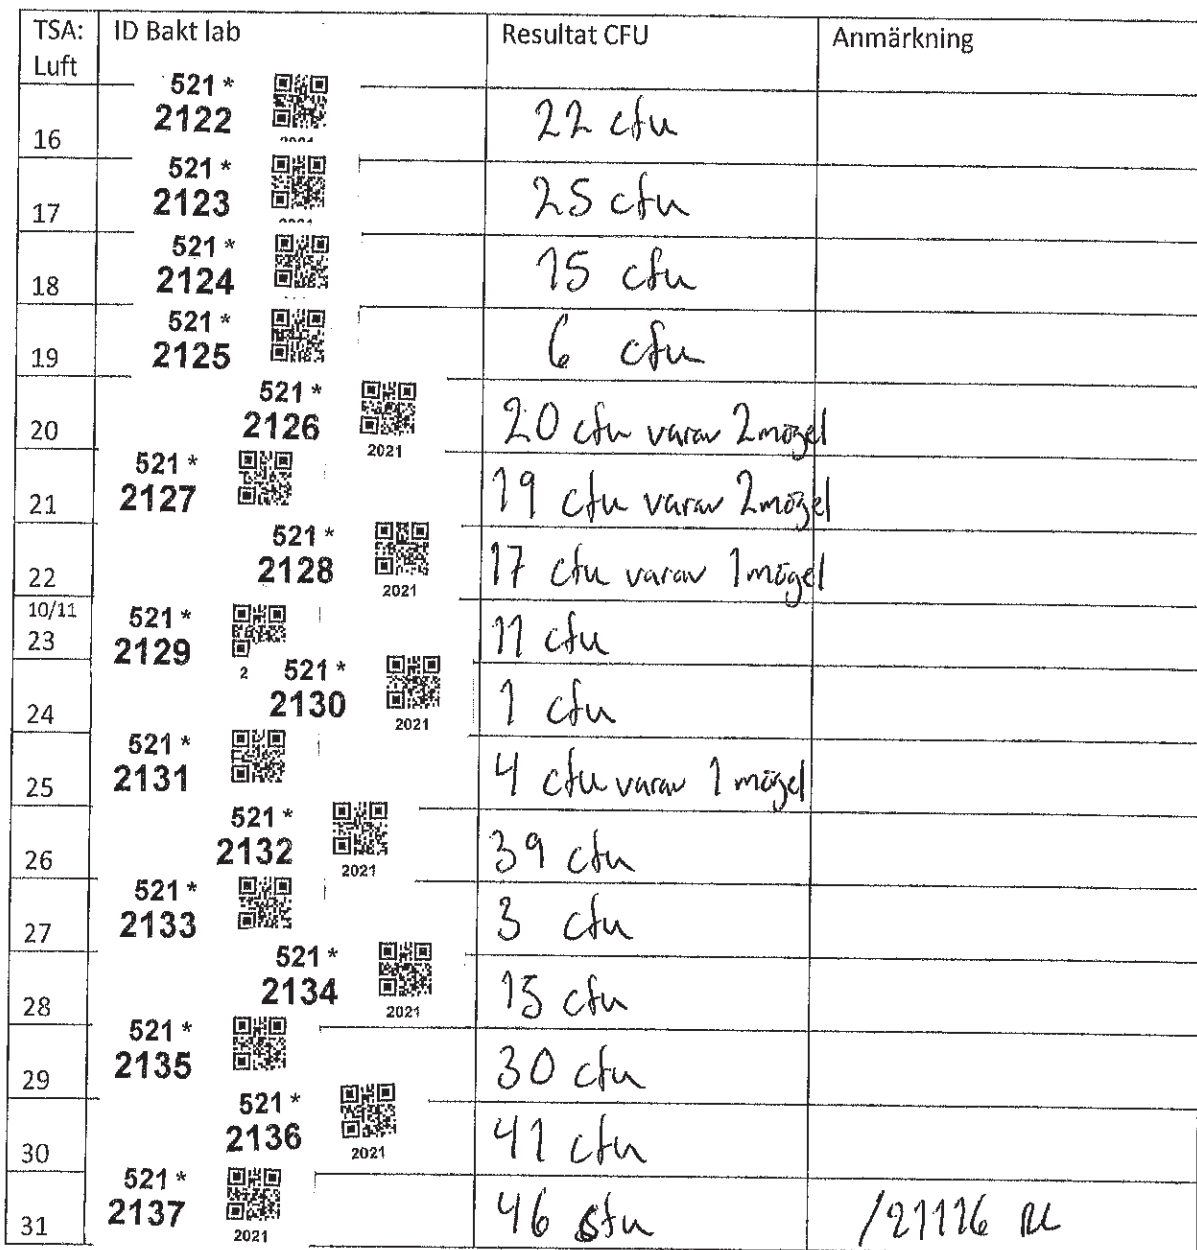 TSA: Luft ID Bakt lab Resultat CFU Anmärkning
16 521 * 2122 22 cfu
17 521 * 2123 25 cfu
18 521 * 2124 15 cfu
19 521 * 2125 6 cfu
20 521 * 2126 2021 20 cfu varav 2 mögel
21 521 * 2127 19 cfu varav 2 mögel
22 521 * 2128 2021 17 cfu varav 1 mögel
10/11 23 521 * 2129 2 11 cfu
24 521 * 2130 2021 1 cfu
25 521 * 2131 4 cfu varav 1 mögel
26 521 * 2132 2021 39 cfu
27 521 * 2133 3 cfu
28 521 * 2134 2021 15 cfu
29 521 * 2135 30 cfu
30 521 * 2136 2021 41 cfu
31 521 * 2137 2021 46 cfu /21116